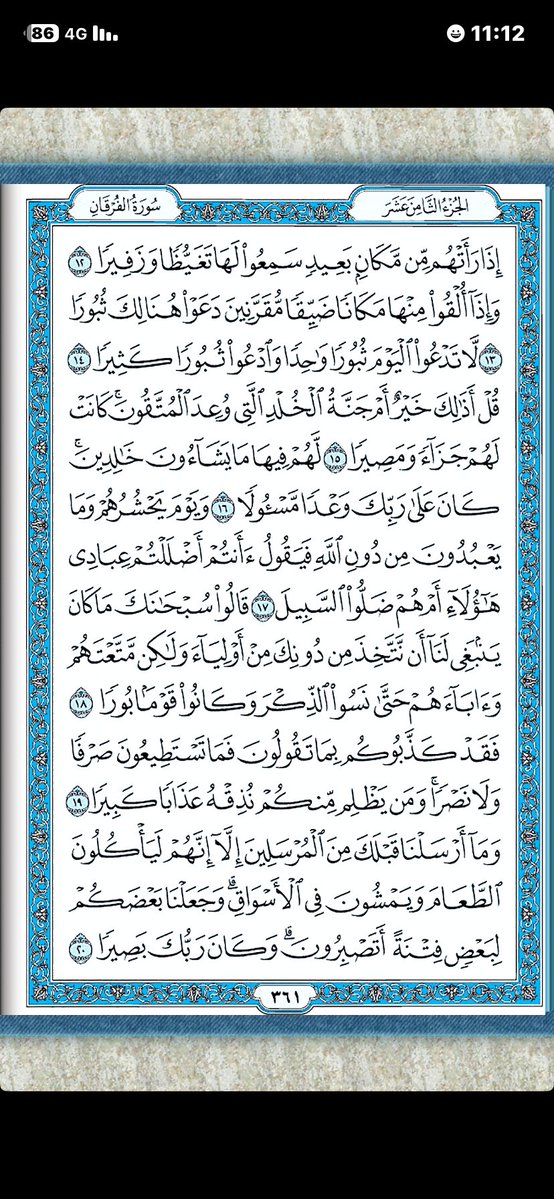 86 4G 11:12
الجزء الثامن عشر
سورة الفرقان
إِذَا رَأَتْهُم مِّن مَّكَانٍۭ بَعِيدٍ سَمِعُوا۟ لَهَا تَغَيُّظًا وَزَفِيرًا ١٢
وَإِذَآ أُلْقُوا۟ مِنْهَا مَكَانًا ضَيِّقًا مُّقَرَّنِينَ دَعَوْا۟ هُنَالِكَ ثُبُورًا
١٣ لَّا تَدْعُوا۟ ٱلْيَوْمَ ثُبُورًا وَٰحِدًا وَٱدْعُوا۟ ثُبُورًا كَثِيرًا ١٤
قُلْ أَذَٰلِكَ خَيْرٌ أَمْ جَنَّةُ ٱلْخُلْدِ ٱلَّتِى وُعِدَ ٱلْمُتَّقُونَ ۚ كَانَتْ
لَهُمْ جَزَآءً وَمَصِيرًا ١٥ لَّهُمْ فِيهَا مَا يَشَآءُونَ خَٰلِدِينَ ۚ
كَانَ عَلَىٰ رَبِّكَ وَعْدًا مَّسْـُٔولًا ١٦ وَيَوْمَ يَحْشُرُهُمْ وَمَا
يَعْبُدُونَ مِن دُونِ ٱللَّهِ فَيَقُولُ ءَأَنتُمْ أَضْلَلْتُمْ عِبَادِى
هَٰٓؤُلَآءِ أَمْ هُمْ ضَلُّوا۟ ٱلسَّبِيلَ ١٧ قَالُوا۟ سُبْحَٰنَكَ مَا كَانَ
يَنۢبَغِى لَنَآ أَن نَّتَّخِذَ مِن دُونِكَ مِنْ أَوْلِيَآءَ وَلَٰكِن مَّتَّعْتَهُمْ
وَءَابَآءَهُمْ حَتَّىٰ نَسُوا۟ ٱلذِّكْرَ وَكَانُوا۟ قَوْمًۢا بُورًا ١٨
فَقَدْ كَذَّبُوكُم بِمَا تَقُولُونَ فَمَا تَسْتَطِيعُونَ صَرْفًا
وَلَا نَصْرًا ۚ وَمَن يَظْلِم مِّنكُمْ نُذِقْهُ عَذَابًا كَبِيرًا ١٩
وَمَآ أَرْسَلْنَا قَبْلَكَ مِنَ ٱلْمُرْسَلِينَ إِلَّآ إِنَّهُمْ لَيَأْكُلُونَ
ٱلطَّعَامَ وَيَمْشُونَ فِى ٱلْأَسْوَاقِ ۗ وَجَعَلْنَا بَعْضَكُمْ
لِبَعْضٍ فِتْنَةً أَتَصْبِرُونَ ۗ وَكَانَ رَبُّكَ بَصِيرًا ٢٠
٣٦١